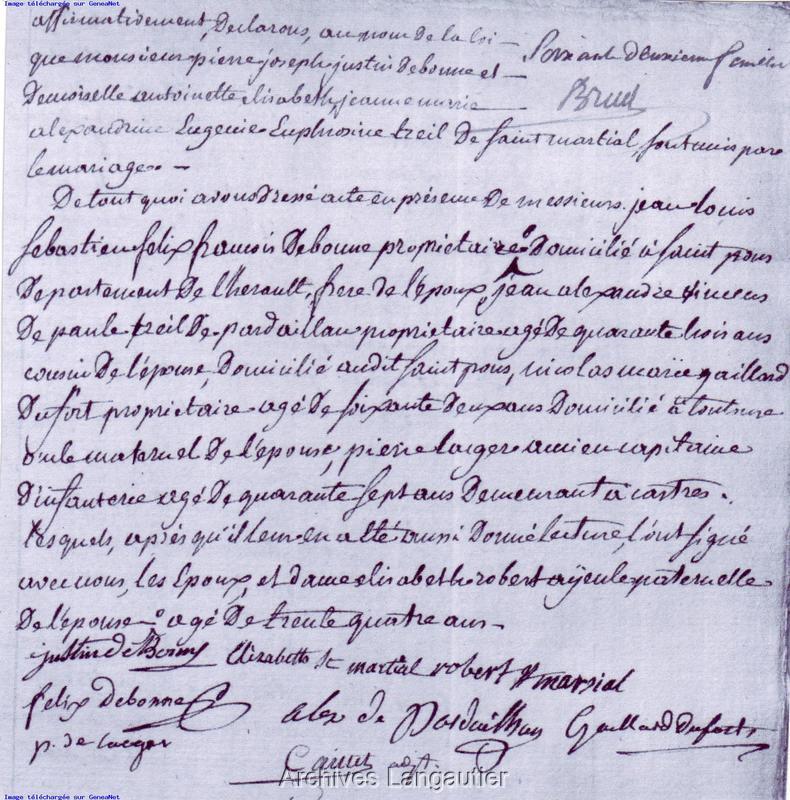 Image téléchargée sur GeneaNet
affirmativement, Declarons, au nom de la loi —
que monsieur pierre joseph justin Debonne et —
Demoiselle antoinette elisabeth jeanne marie
alexandrine Eugenie Euphrosine treil De saint martial, sont unis par
le mariage. —
Soixante deuxieme feuillet
De tout quoi avons dressé acte en présence De messieurs jean louis
sebastien felix francois Debonne propriétaire Domicilié à saint pons
Departement De l'herault, frere de l'époux, jean alexandre vincens
De paule treil De pardaillan propriétaire agé De quarante trois ans
cousin De l'épouse, Domicilié audit saint pons, nicolas marie gaillard
Dufort propriétaire agé De soixante Deux ans Domicilié à
oncle maternel De l'epouse, pierre larger ancien capitaine
D'infanterie agé De quarante sept ans Demeurant à castres.
lesquels, après qu'il leur en a été aussi Donné lecture, l'ont signé
avec nous, les Epoux, et dame elisabeth robert ayeule paternelle
De l'épouse agé De trente quatre ans —
justin de Bonne Elizabeth St martial robert St marsial
felix debonne
alex de Pardailhan Gaillard Dufort
p. de larger
adjt.
Archives Langautier
Image téléchargée sur GeneaNet
Image téléchargée sur GeneaNet